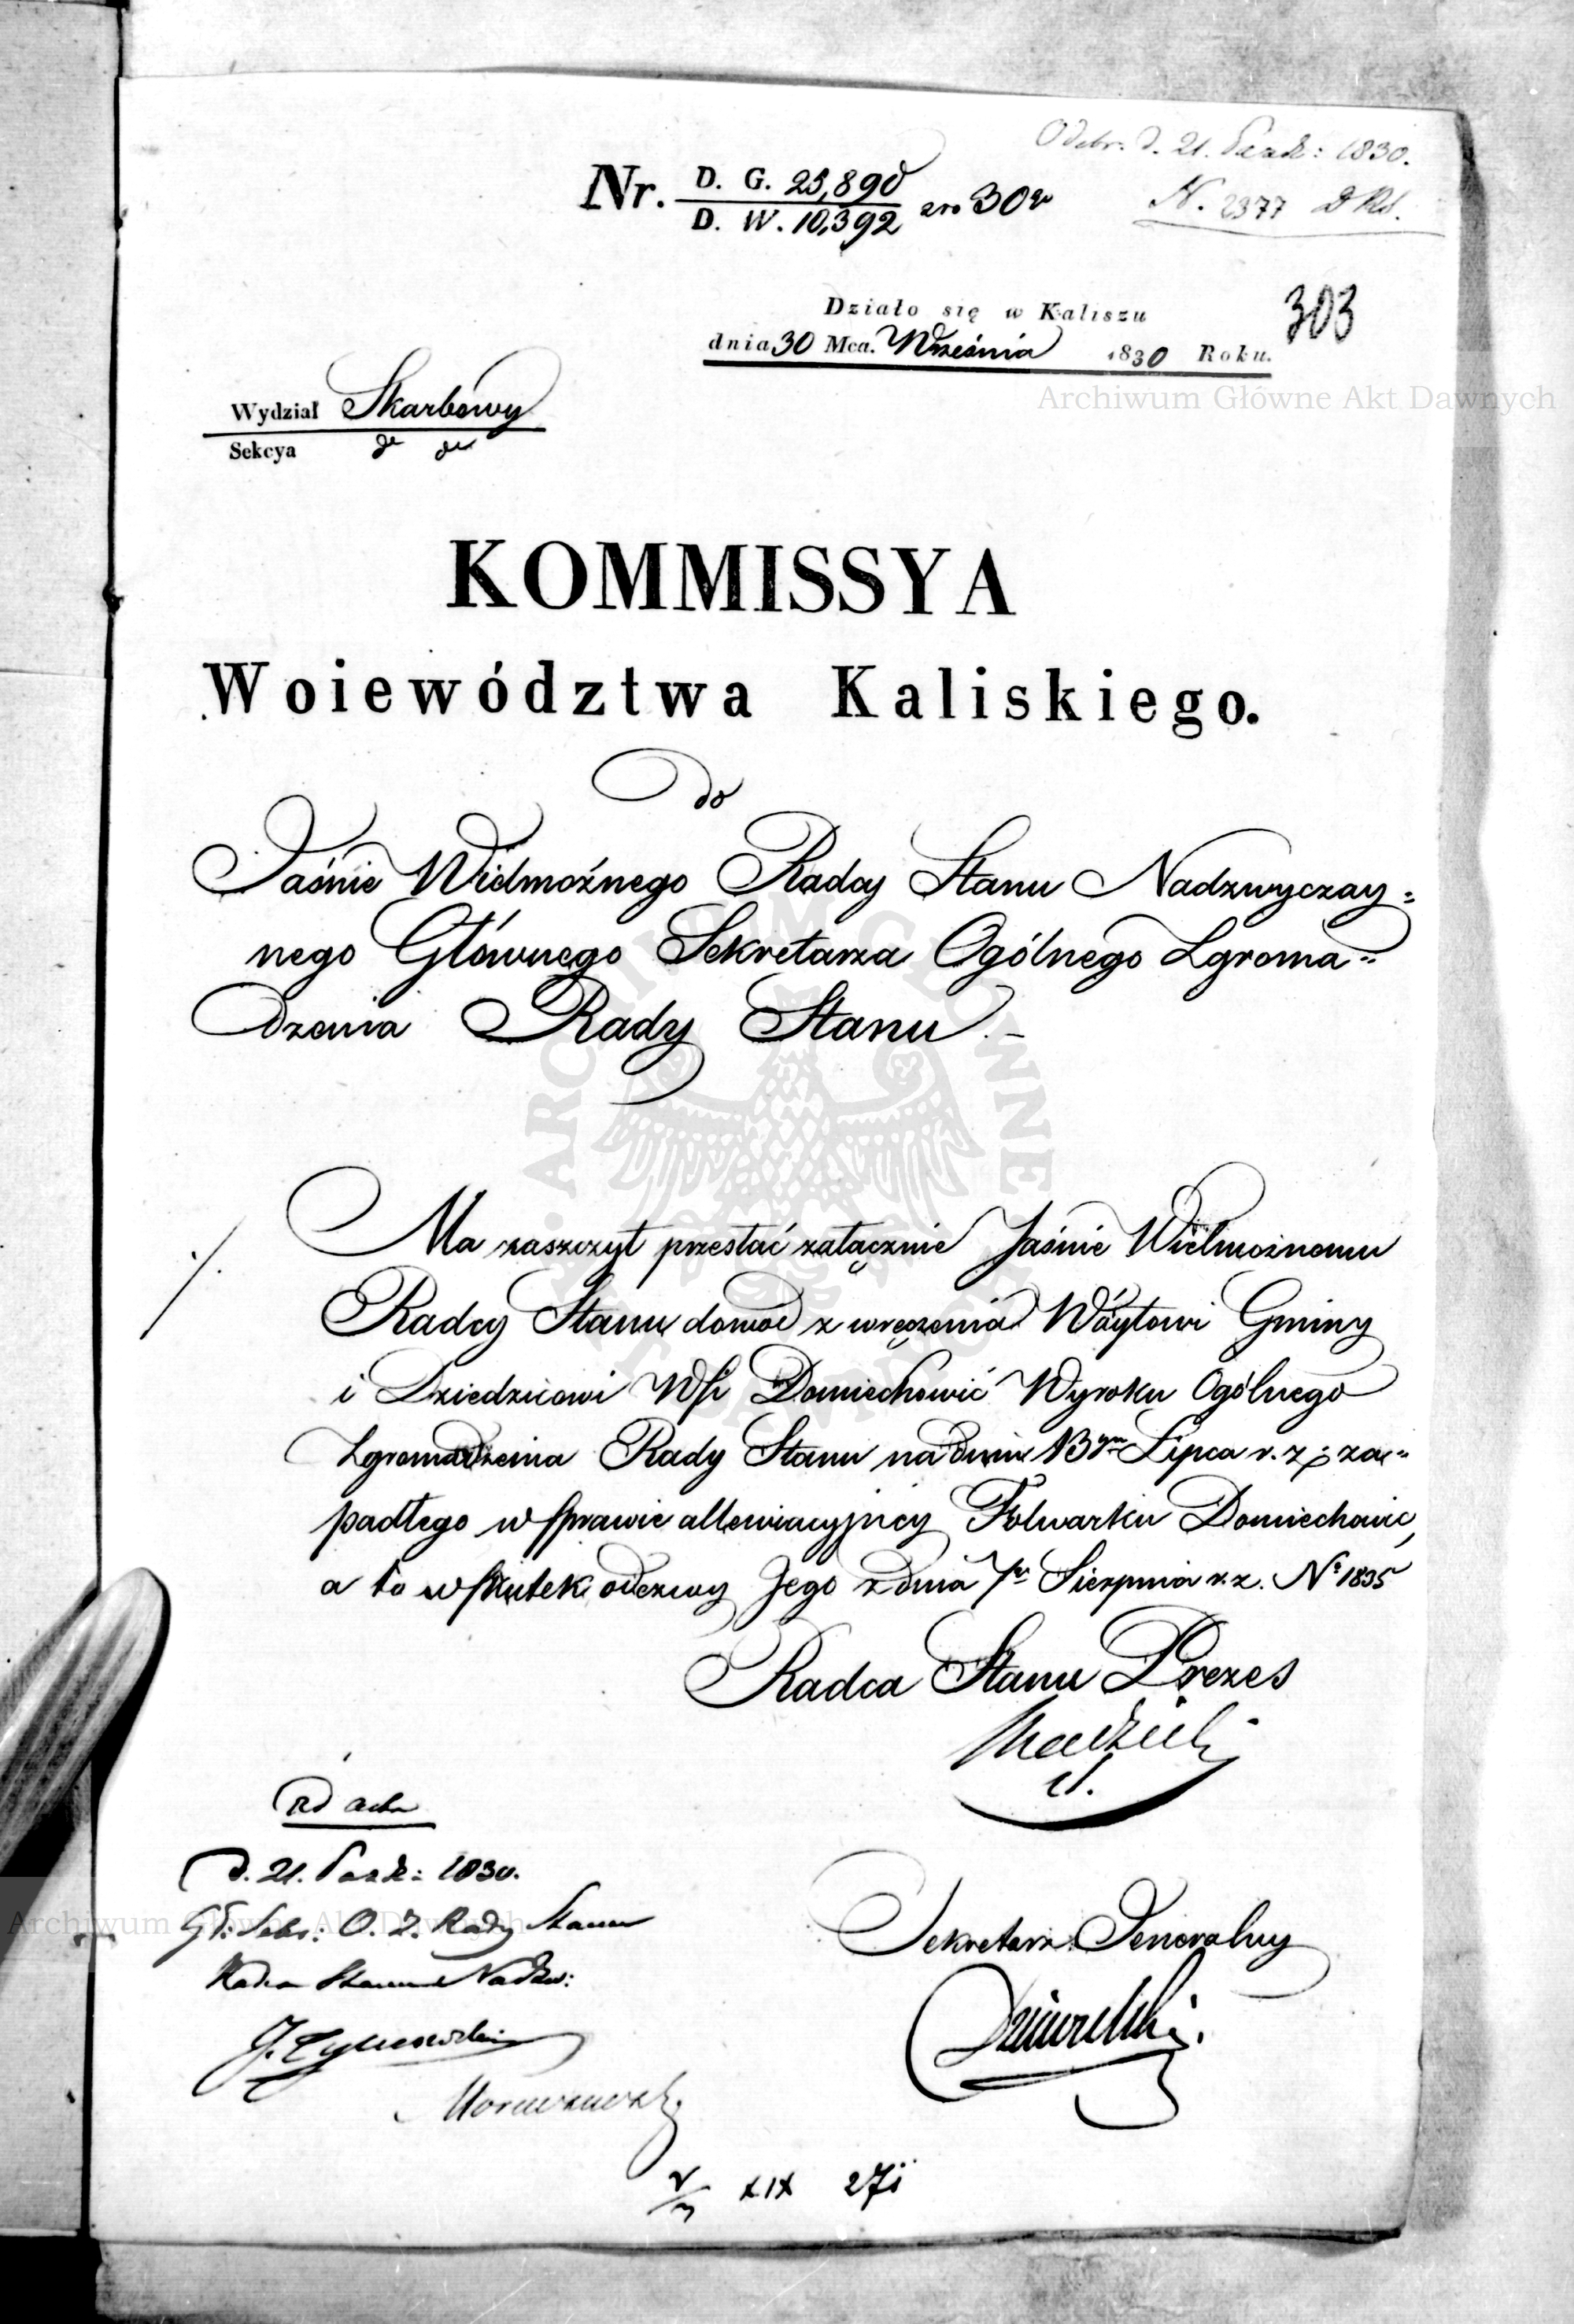 Odebr. d. 21. Paźdz: 1830.
N. 2377 D Rd.
Nr. D. G. 25,890
D. W. 10,392
303
Działo się w Kaliszu
dnia 30 Mca. Września 1830 Roku.
Wydział Skarbowy
Sekcya
KOMMISSYA
Woiewództwa Kaliskiego.
do
Jaśnie Wielmożnego Radcy Stanu Nadzwyczay=
nego Głównego Sekretarza Ogólnego Zgroma=
dzenia Rady Stanu.
Ma zaszczyt przesłać załącznie Jaśnie Wielmożnemu
Radcy Stanu dowód z wręczenia Wóytowi Gminy
i Dziedzicowi Wsi Domiechowic Wyroku Ogólnego
Zgromadzenia Rady Stanu na dniu 13ym Lipca r. z. za=
padłego w sprawie allewiacyjney Folwarku Domiechowic,
a to w skutek odezwy Jego z dnia 7go Sierpnia r. z. No 1835
Radca Stanu Prezes
ad acta
d. 21. Paźdz: 1830.
Gł: Sekr: O. Z. Rady Stanu
Radca Stanu Nadzw:
Sekretarz Jeneralny
XIX 27i
Archiwum Główne Akt Dawnych
Archiwum Główne Akt Dawnych
ARCHIWUM GŁÓWNE AKT DAWNYCH